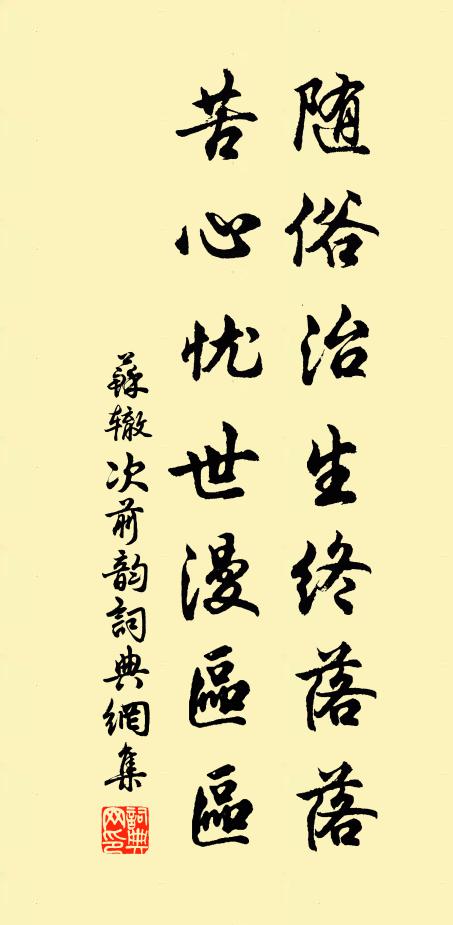 随俗治生终落落
苦心忧世漫區區
蘇辙次前韵詞典網集
詞典网印